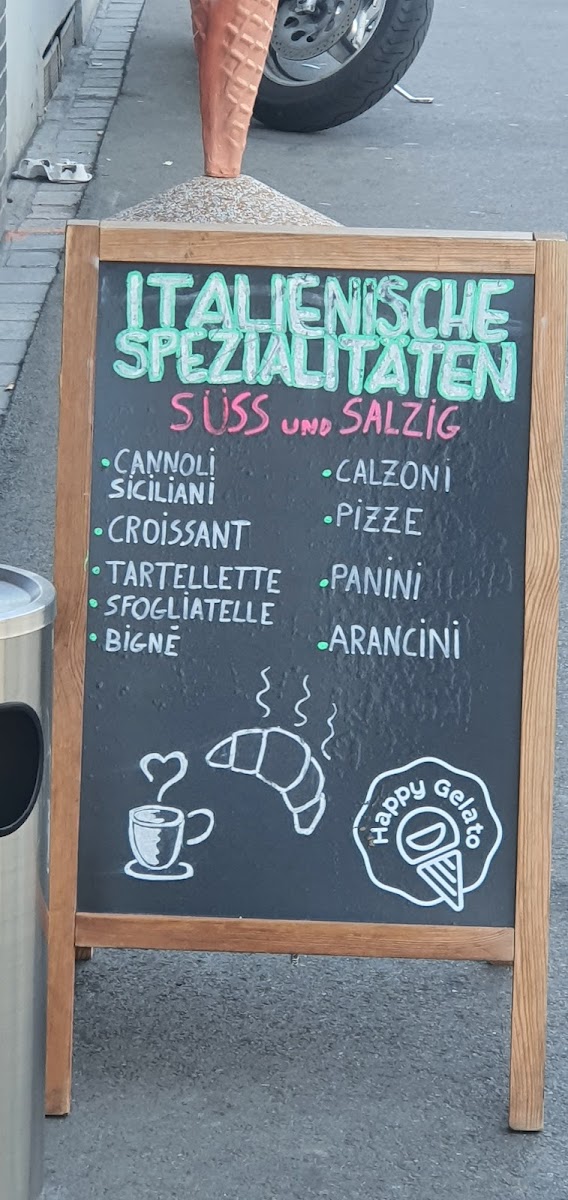 ITALIENISCHE
SPEZIALITÄTEN
SÜSS UND SALZIG
• CANNOLI
SICILIANI
• CROISSANT
• TARTELLETTE
• SFOGLIATELLE
• BIGNÉ
• CALZONI
• PIZZE
• PANINI
• ARANCINI
Happy Gelato